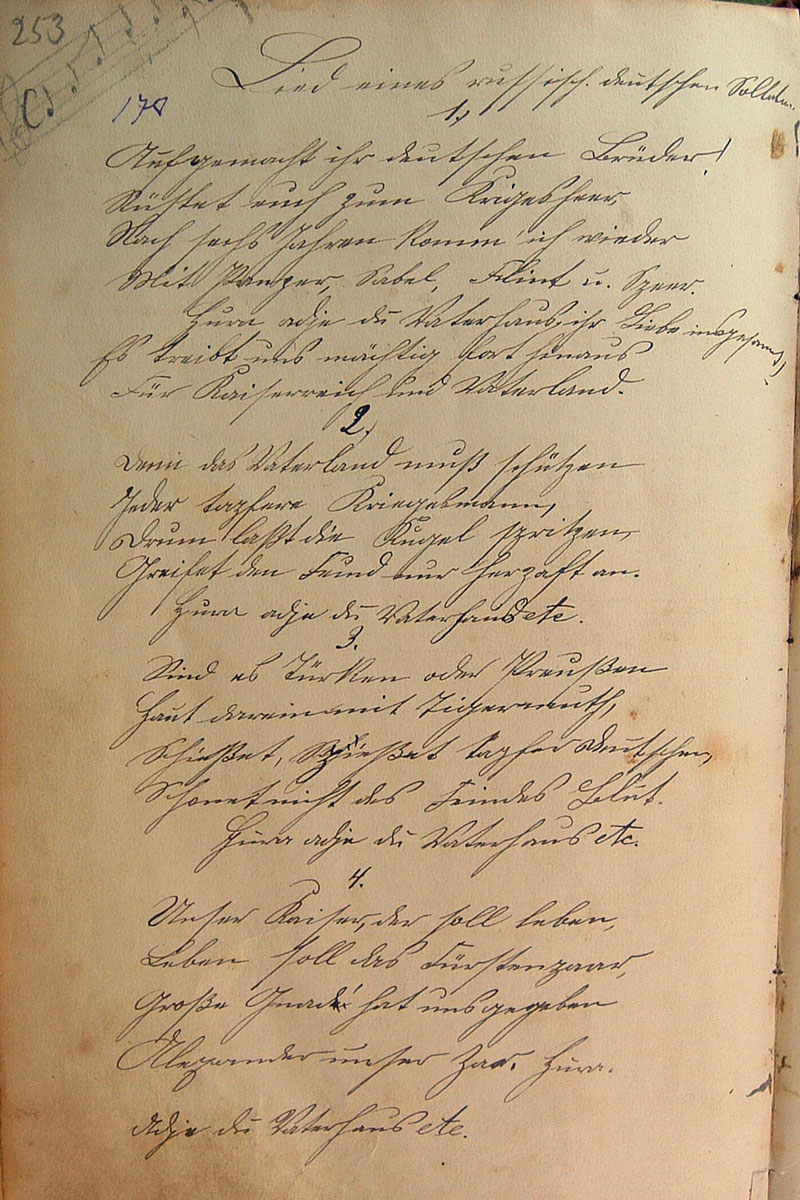 253
C
Lied eines russisch. deutschen Soldaten.
178
1,
Aufgemacht ihr deutschen Brüder!
Rüstet euch zum Krigesheer,
Nach sechs Jahren komm' ich wieder
Mit Panzer, Sabel, Flint u. Speer.
Hura adje du Vaterhaus, ihr Liebe insgesamt,
Es treibt uns mächtig fort hinaus
Für Kaiserreich und Vaterland.
2,
Denn das Vaterland muß schützen
Jeder tapfere Kriegesmann,
Drum laßt die Kugel spritzen,
Greifet den Feind nur herzaft an.
Hura adje du Vaterhaus etc.
3.
Sind es Türken oder Preußen
Haut darein mit Tigermuth,
Schießet, schießet tapfer Deutschen,
Schonet nicht des Feindes Blut.
Hura adje du Vaterhaus etc.
4.
Unser Kaiser, der soll leben,
Leben soll das Fürstenpaar,
Große Gnad' hat uns gegeben
Alexander unser Zar. Hura.
Adje du Vaterhaus etc.